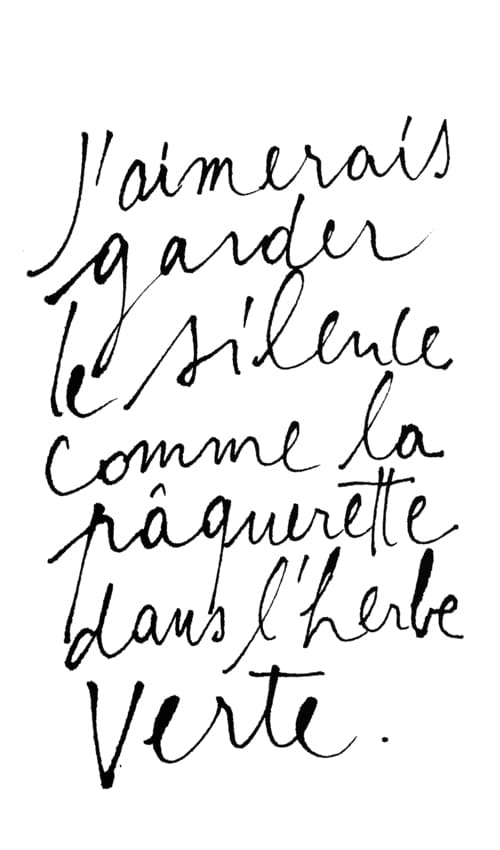 J'aimerais
garder
le silence
comme la
pâquerette
dans l'herbe
verte.